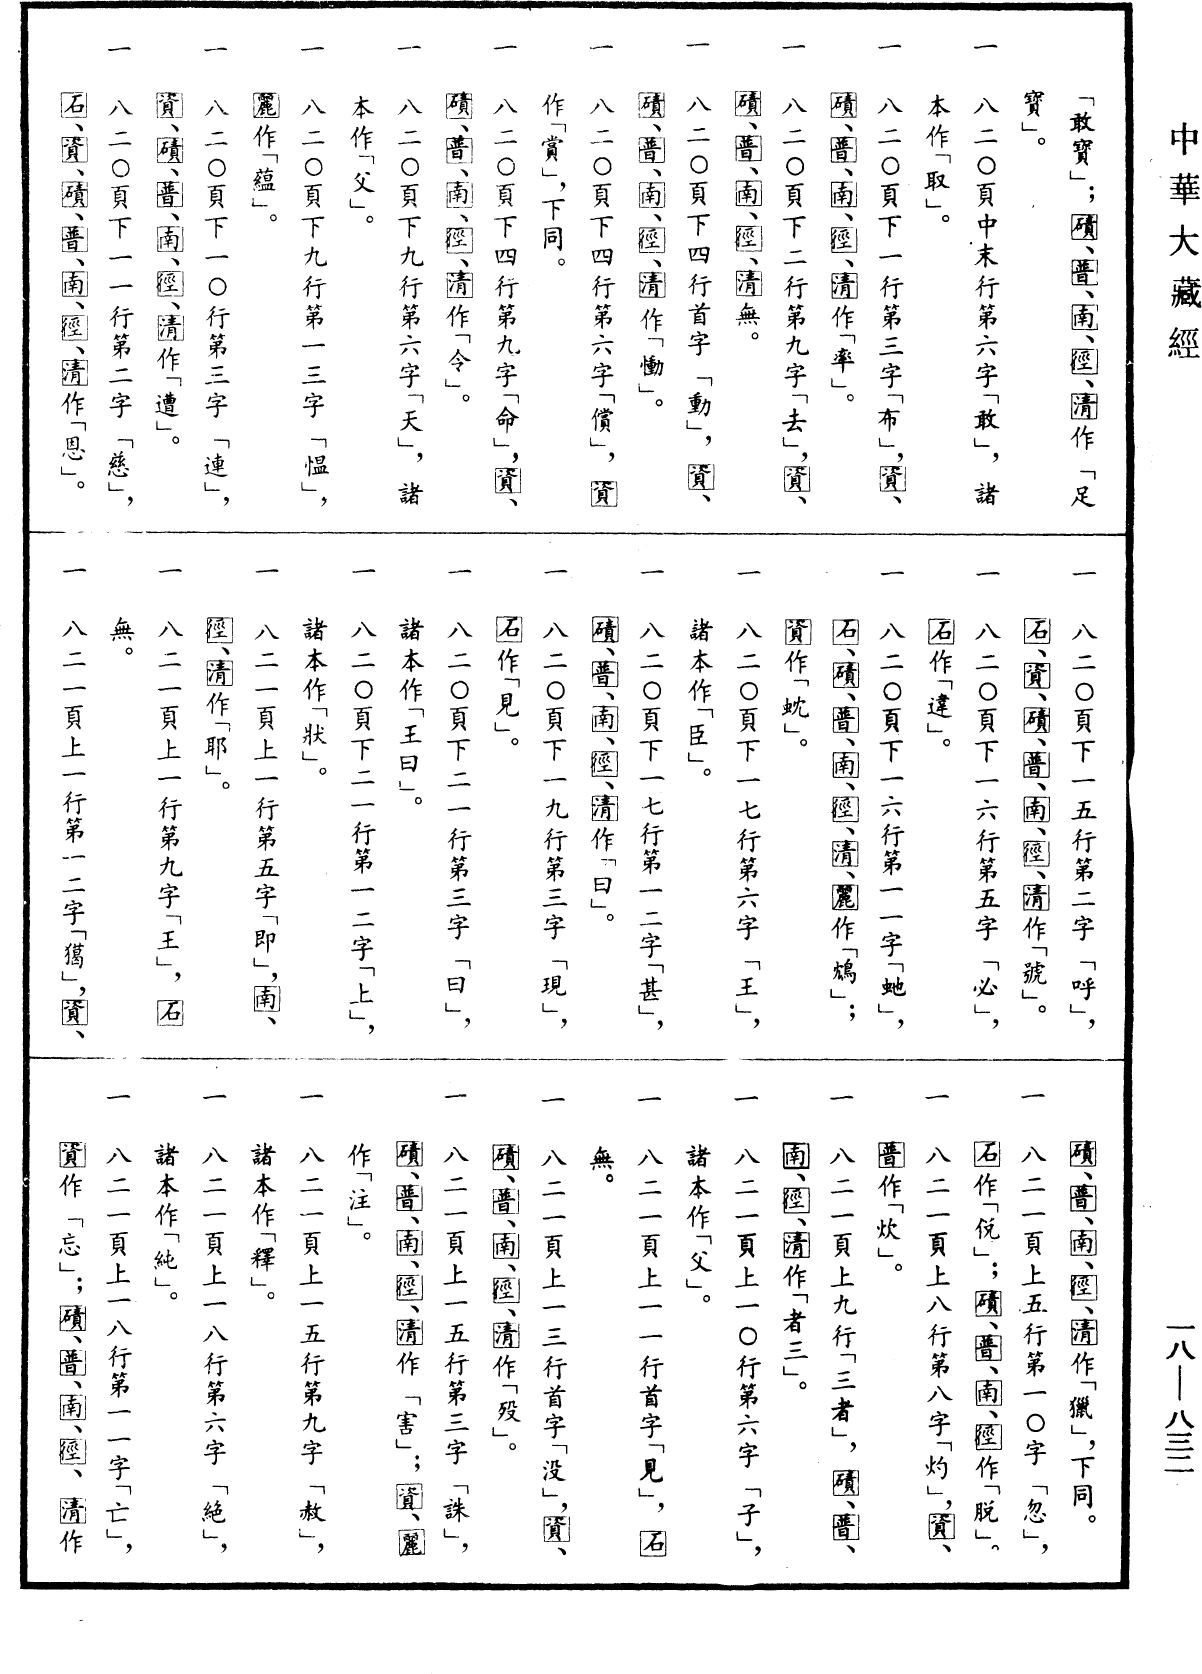 中華大藏經
「敢寶」；磧、普、南、徑、清作「足
寶」。
一　八二〇頁中末行第六字「敢」，諸
本作「取」。
一　八二〇頁下一行第三字「布」，資、
磧、普、南、徑、清作「率」。
一　八二〇頁下二行第九字「去」，資、
磧、普、南、徑、清無。
一　八二〇頁下四行首字「動」，資、
磧、普、南、徑、清作「慟」。
一　八二〇頁下四行第六字「償」，資
作「賞」，下同。
一　八二〇頁下四行第九字「命」，資、
磧、普、南、徑、清作「令」。
一　八二〇頁下九行第六字「天」，諸
本作「父」。
一　八二〇頁下九行第一三字「愠」，
麗作「蘊」。
一　八二〇頁下一〇行第三字「連」，
資、磧、普、南、徑、清作「遭」。
一　八二〇頁下一一行第二字「慈」，
石、資、磧、普、南、徑、清作「恩」。
一　八二〇頁下一五行第二字「呼」，
石、資、磧、普、南、徑、清作「號」。
一　八二〇頁下一六行第五字「必」，
石作「違」。
一　八二〇頁下一六行第一一字「虵」，
石、磧、普、南、徑、清、麗作「鴆」；
資作「虵」。
一　八二〇頁下一七行第六字「王」，
諸本作「臣」。
一　八二〇頁下一七行第一二字「甚」，
磧、普、南、徑、清作「曰」。
一　八二〇頁下一九行第三字「現」，
石作「見」。
一　八二〇頁下二一行第三字「曰」，
諸本作「王曰」。
一　八二〇頁下二一行第一二字「上」，
諸本作「狀」。
一　八二一頁上一行第五字「即」，南、
徑、清作「耶」。
一　八二一頁上一行第九字「王」，石
無。
一　八二一頁上一行第一二字「獦」，資、
磧、普、南、徑、清作「獵」，下同。
一　八二一頁上五行第一〇字「忽」，
石作「侻」；磧、普、南、徑作「脱」。
一　八二一頁上八行第八字「灼」，資、
普作「炊」。
一　八二一頁上九行「三者」，磧、普、
南、徑、清作「者三」。
一　八二一頁上一〇行第六字「子」，
諸本作「父」。
一　八二一頁上一一行首字「見」，石
無。
一　八二一頁上一三行首字「没」，資、
磧、普、南、徑、清作「歿」。
一　八二一頁上一五行第三字「誅」，
磧、普、南、徑、清作「害」；資、麗
作「注」。
一　八二一頁上一五行第九字「赦」，
諸本作「釋」。
一　八二一頁上一八行第六字「絶」，
諸本作「純」。
一　八二一頁上一八行第一一字「亡」，
資作「忘」；磧、普、南、徑、清作
一八—八三二